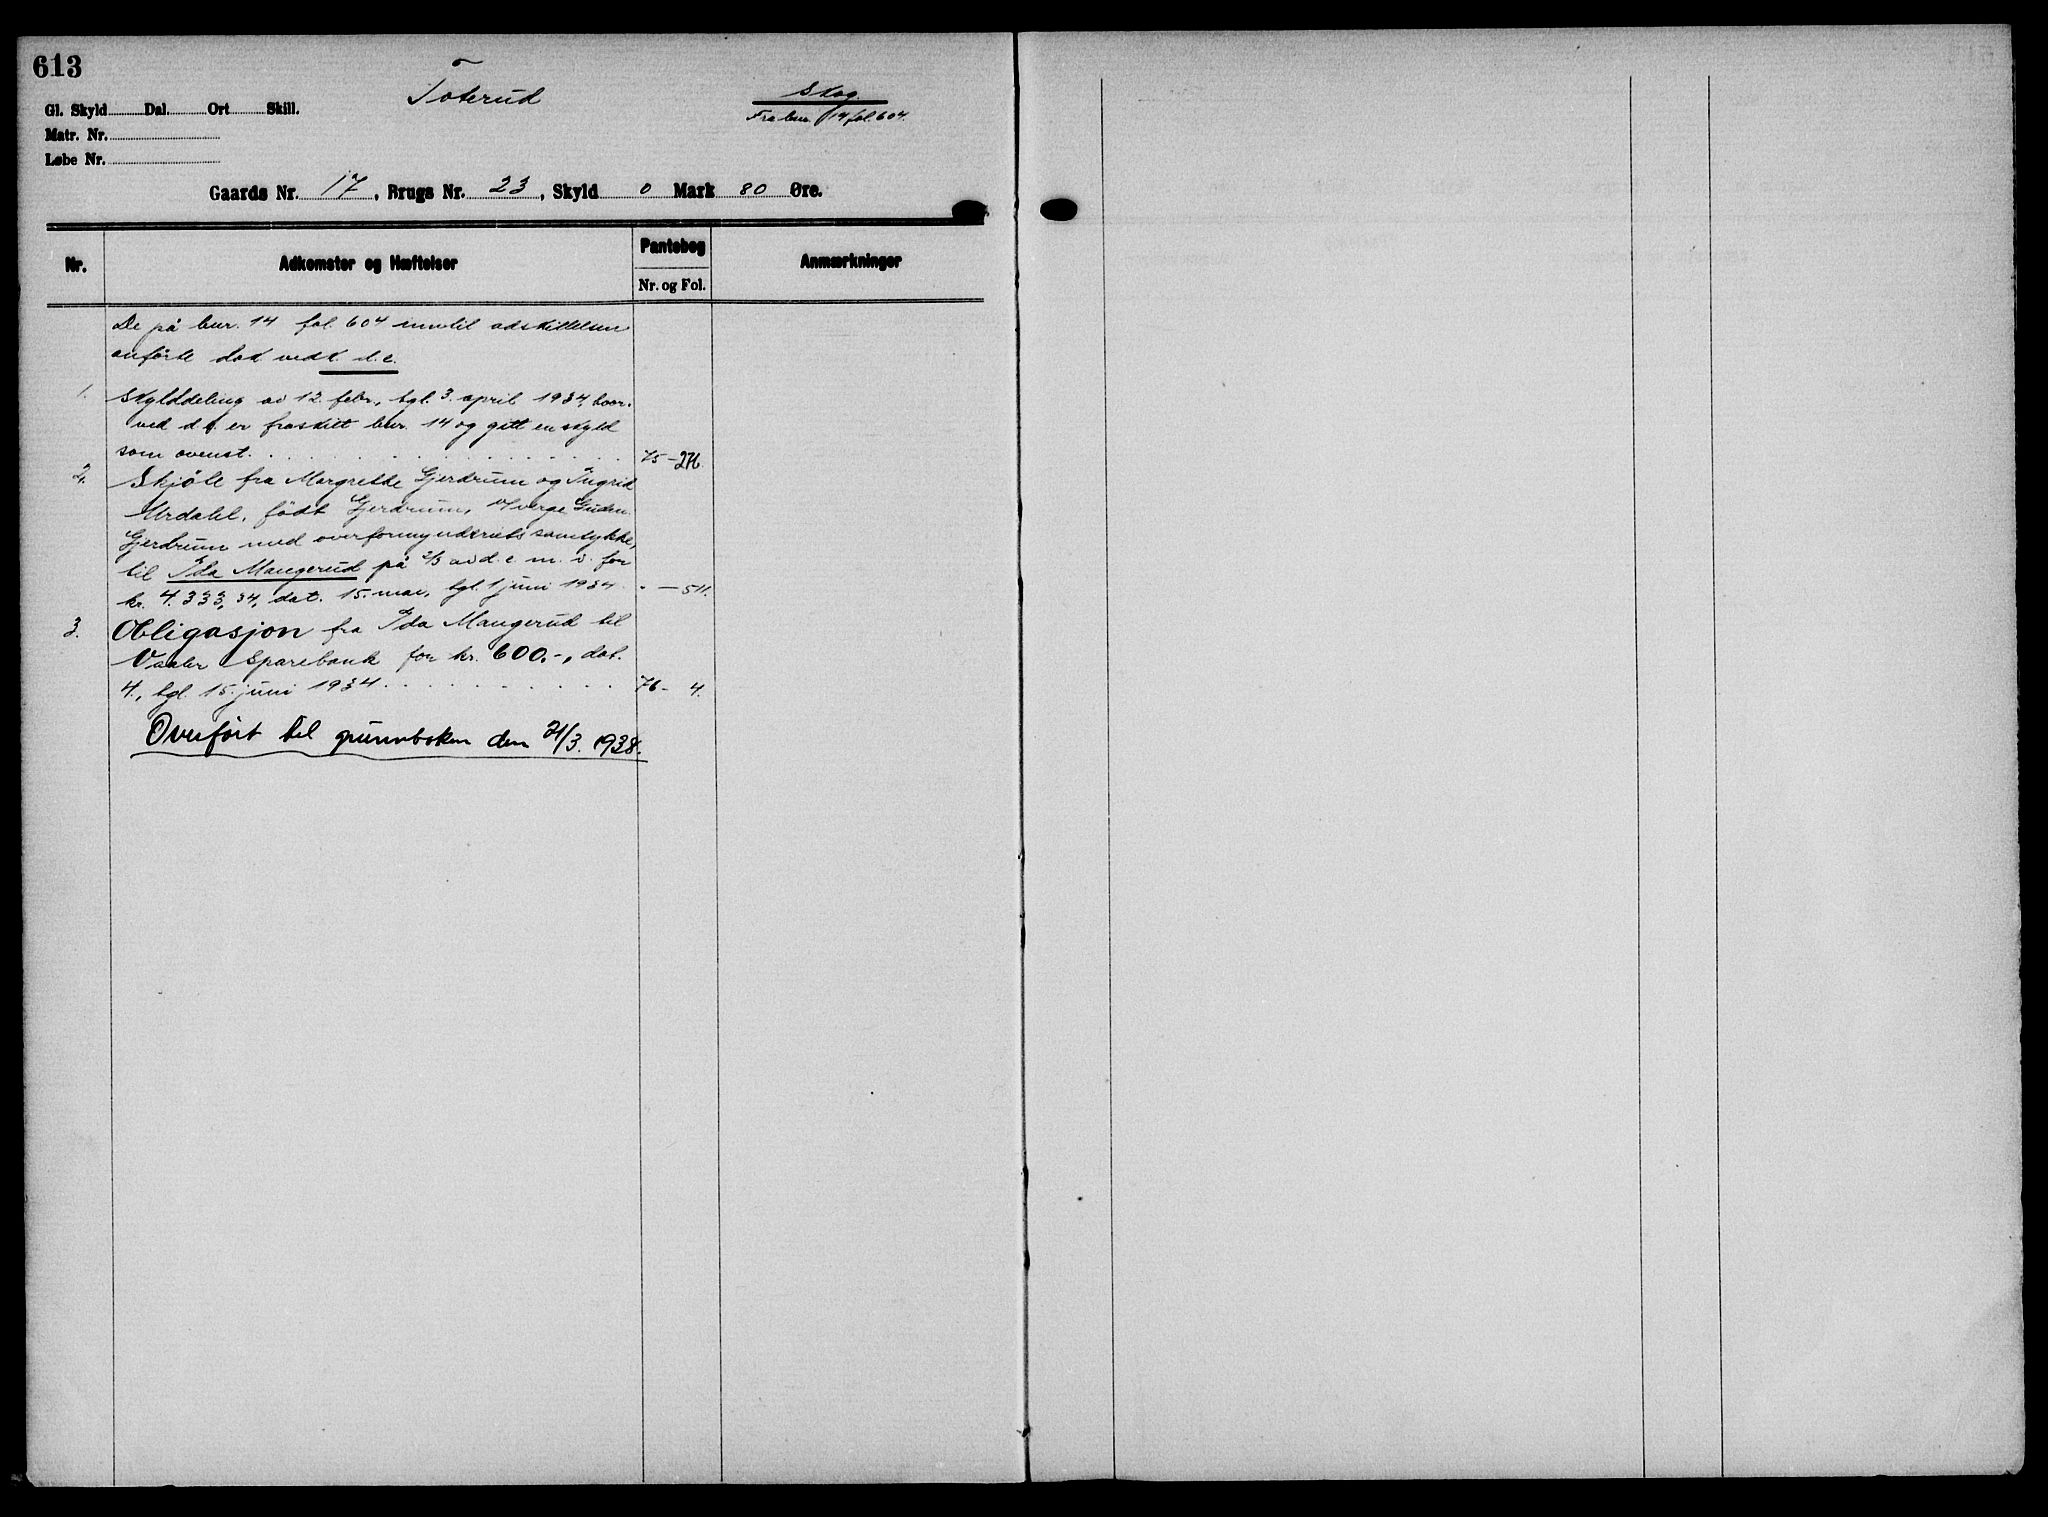 613
Toterud
Skog.
Fra bnr. 14 fol. 604.
Gl. Skyld Dal. Ort Skill.
Matr. Nr.
Løbe Nr.
Gaards Nr. 17, Brugs Nr. 23, Skyld 0 Mark 80 Øre.
Nr.
Adkomster og Hæftelser
Pantebog
Nr. og Fol.
Anmærkninger
De på bnr. 14 fol. 604 inntil adskillelsen
anførte dok. vedk. d.e.
1. Skylddeling av 12. febr., tgl. 3. april 1934, hvor-
ved d.e. er fraskilt bnr. 14 og gitt en skyld
som ovenst. 75 - 276.
2. Skjøte fra Margrethe Gjerdrum og Ingrid
Urdahl, født Gjerdrum, v/ verge
Gjerdrum med overformynderiets samtykke,
til Ida Mangerud på 2/3 av d.e. m. v. for
kr. 4.333,34, dat. 15. mai, tgl. 1 juni 1934 " - 511.
3. Obligasjon fra Ida Mangerud til
Vaaler Sparebank for kr. 600.-, dat.
4., tgl. 15. juni 1934 76 - 4.
Overført til grunnboken den 21/3. 1938.